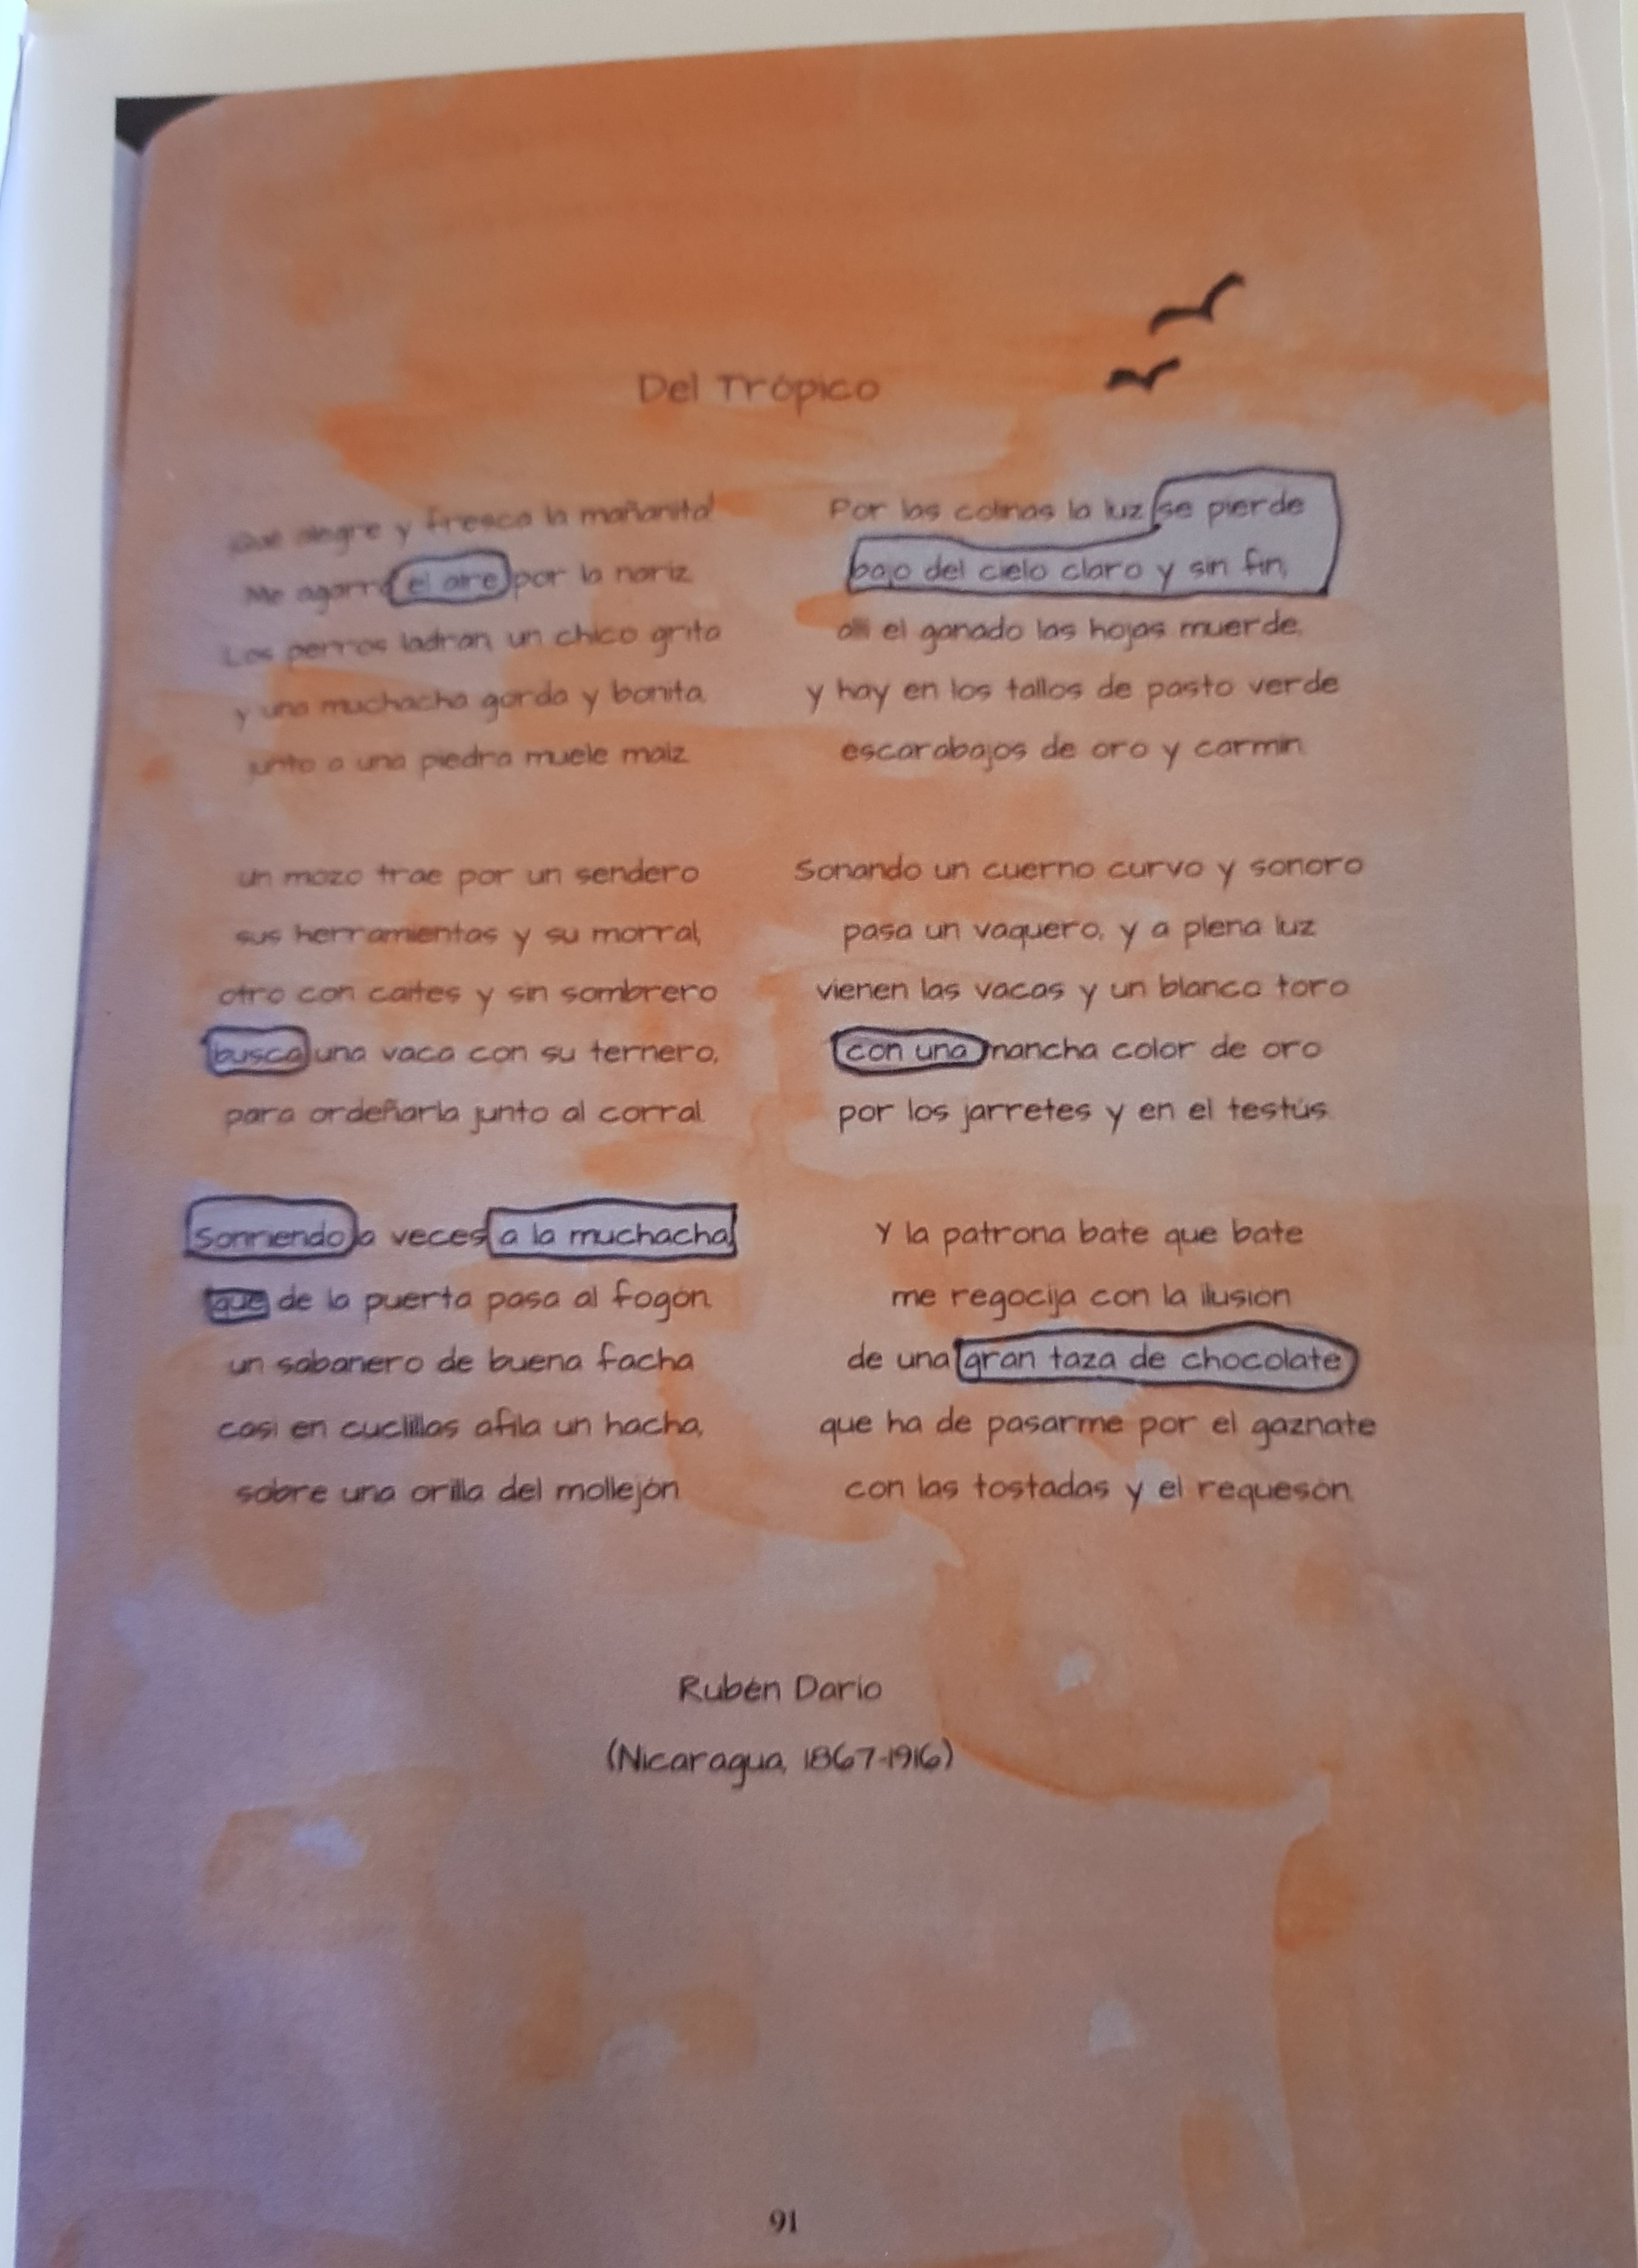 Del Trópico
¡Qué alegre y fresca la mañanita!
Me agarra el aire por la nariz.
Los perros ladran, un chico grita
y una muchacha gorda y bonita,
junto a una piedra muele maíz.
un mozo trae por un sendero
sus herramientas y su morral,
otro con caites y sin sombrero
busca una vaca con su ternero,
para ordeñarla junto al corral.
Sonriendo a veces a la muchacha,
que de la puerta pasa al fogón,
un sabanero de buena facha
casi en cuclillas afila un hacha,
sobre una orilla del mollejón.
Por las colinas la luz se pierde
bajo del cielo claro y sin fin,
allí el ganado las hojas muerde,
y hay en los tallos de pasto verde
escarabajos de oro y carmín.
Sonando un cuerno curvo y sonoro
pasa un vaquero, y a plena luz
vienen las vacas y un blanco toro
con una mancha color de oro
por los jarretes y en el testús.
Y la patrona bate que bate
me regocija con la ilusión
de una gran taza de chocolate
que ha de pasarme por el gaznate
con las tostadas y el requesón.
Rubén Darío
(Nicaragua, 1867-1916)
91